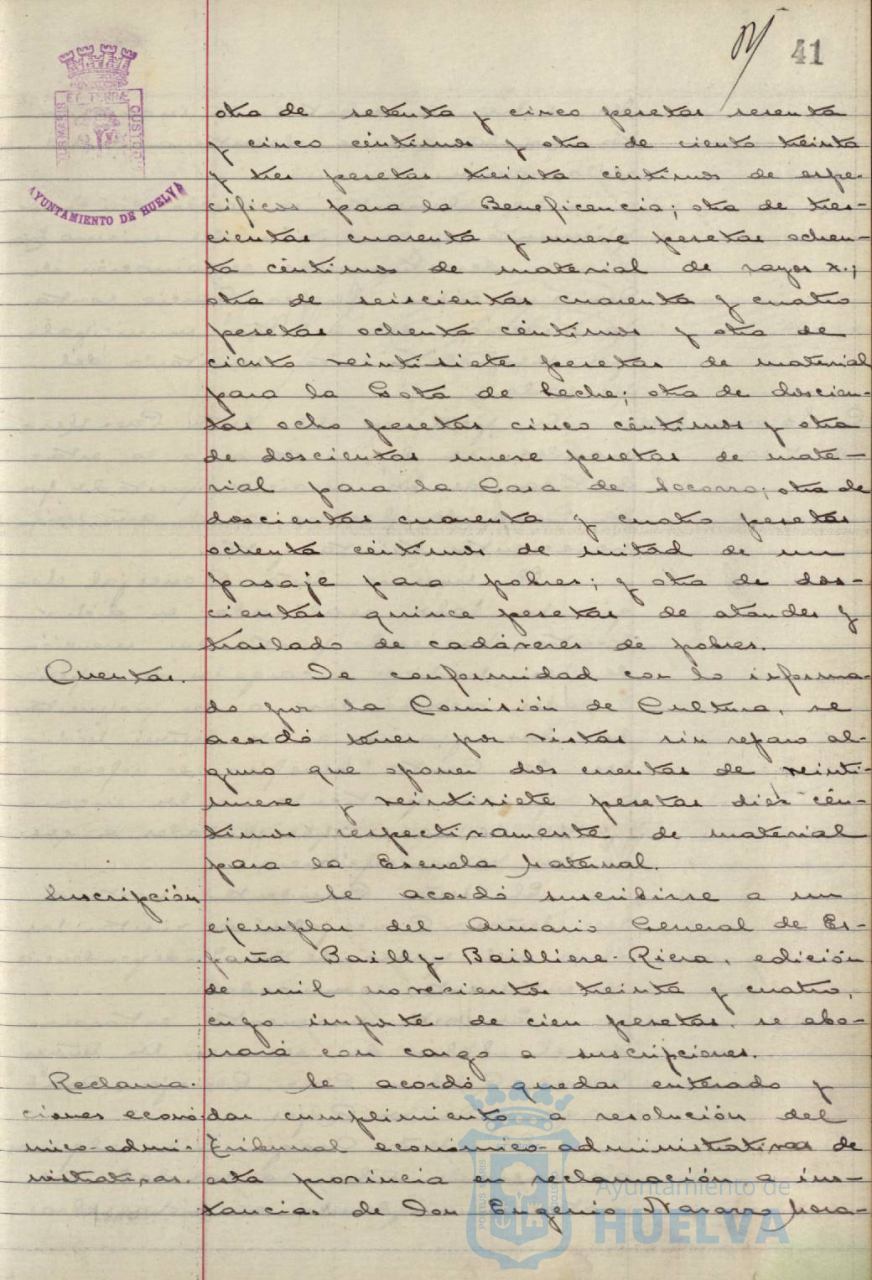 41
otra de setenta y cinco pesetas sesenta
y cinco céntimos y otra de ciento treinta
y tres pesetas treinta céntimos de espe-
cíficos para la Beneficencia; otra de tres-
cientas cuarenta y nueve pesetas ochen-
ta céntimos de material de rayos x.;
otra de seiscientas cuarenta y cuatro
pesetas ochenta céntimos y otra de
ciento veintisiete pesetas de material
para la Gota de Leche; otra de doscien-
tas ocho pesetas cinco céntimos y otra
de doscientas nueve pesetas de mate-
rial para la Casa de Socorro; otra de
doscientas cuarenta y cuatro pesetas
ochenta céntimos de mitad de un
pasaje para pobres; y otra de dos-
cientas quince pesetas de ataudes y
traslado de cadáveres de pobres.
Cuentas. De conformidad con lo informa-
do por la Comisión de Cultura, se
acordó tener por vistas sin reparo al-
guno que oponer dos cuentas de veinti-
nueve y veintisiete pesetas diez cén-
timos respectivamente de material
para la Escuela Maternal.
Suscripción Se acordó suscribirse a un
ejemplar del Anuario General de Es-
paña Bailly-Bailliere-Riera, edición
de mil novecientos treinta y cuatro,
cuyo importe de cien pesetas, se abo-
nará con cargo a suscripciones.
Reclama- Se acordó quedar enterado y
ciones econó- dar cumplimiento a resolución del
mico-admi- Tribunal económico-administrativas de
nistrativas. esta provincia en reclamación a ins-
tancias de Don Eugenio Navarro Mora-
AYUNTAMIENTO DE HUELVA
Ayuntamiento de
HUELVA